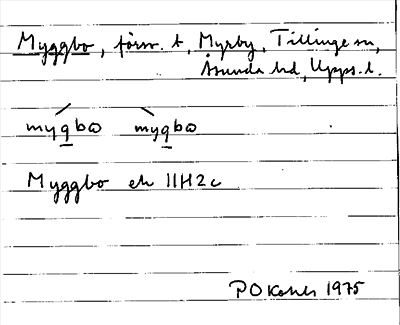 Myggbo, försv. t, Myrby, Tillinge sn,
Åsunda hd, Upps. l.
mygbω mygbω
Myggbo ek 11H2c
P O 1975